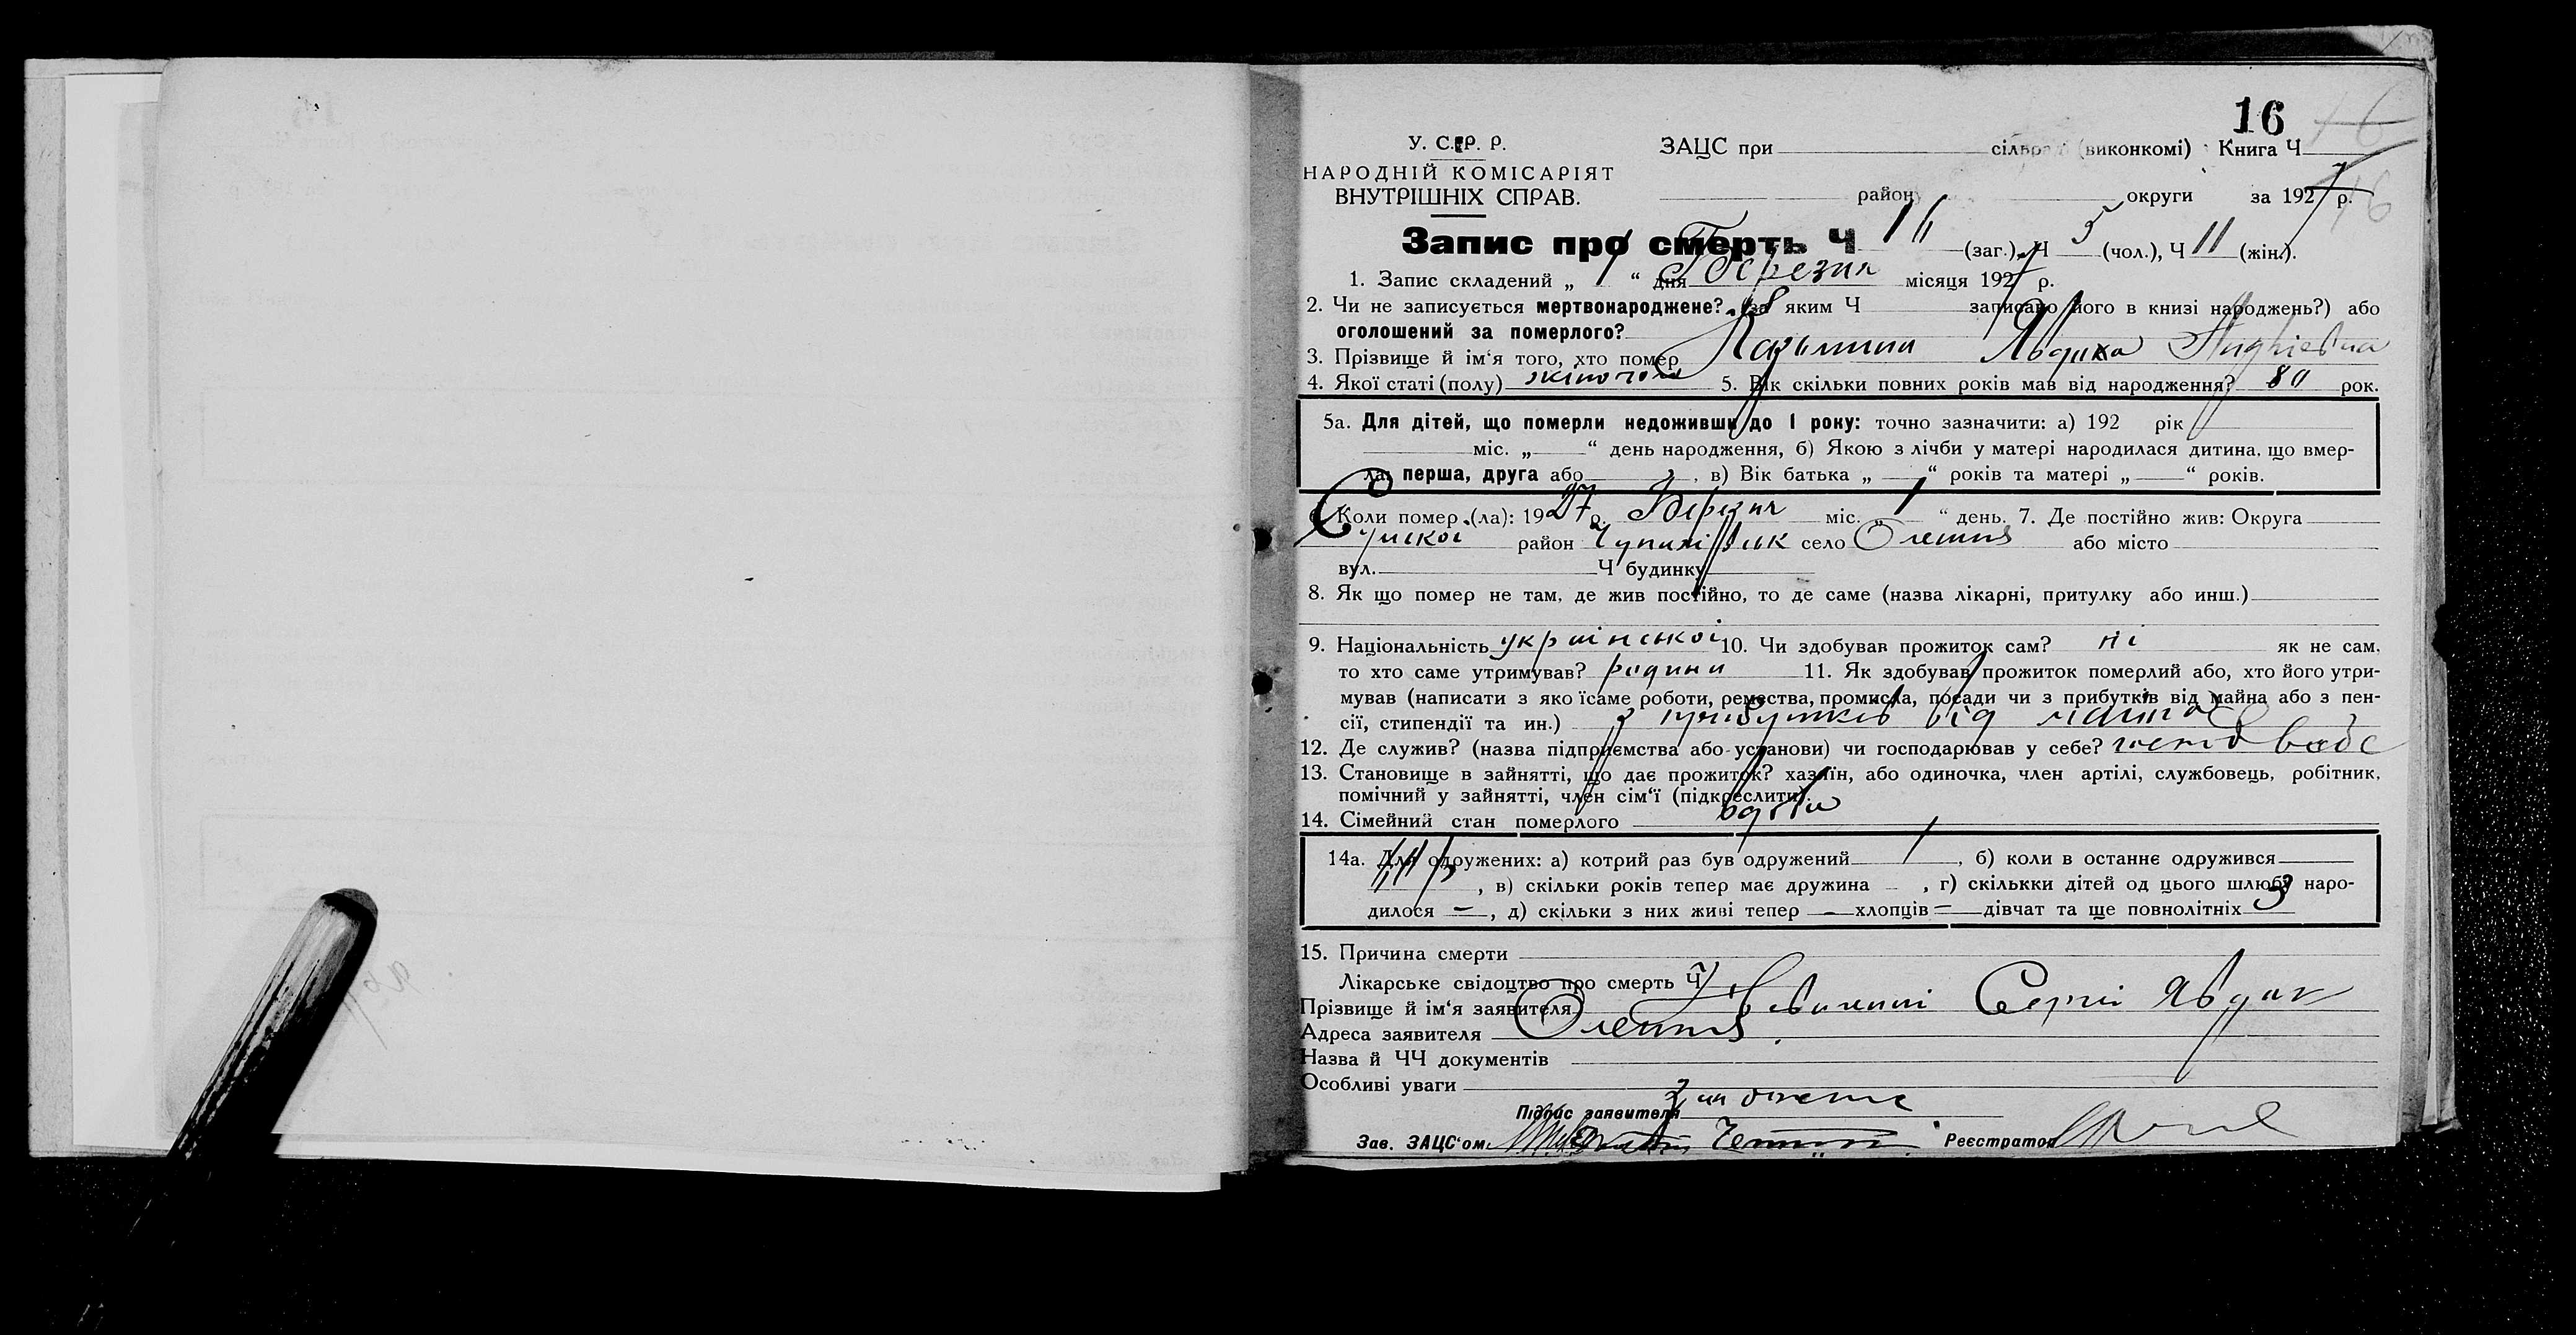 16
У. С. Р. Р.
ЗАЦС при сільраді (виконкомі) Книга Ч
НАРОДНІЙ КОМІСАРІЯТ
ВНУТРІШНІХ СПРАВ.
район округи за 1927 р.
16
Запис про смерть Ч 16 (заг.), Ч 5 (чол.), Ч 11 (жін.).
1. Запис складений „ 1 “ дня Березня місяця 1927 р.
2. Чи не записується мертвонароджене? (за яким Ч записано його в книзі народжень?) або
оголошений за померлого?
3. Прізвище й ім‘я того, хто помер Явдиха
4. Якої статі (полу) жіночого 5. Вік скільки повних років мав від народження? 80 рок.
5а. Для дітей, що померли недоживши до 1 року: точно зазначити: а) 192 рік
міс. „ “ день народження, б) Якою з лічби у матері народилася дитина, що вмер-
ла: перша, друга або , в) Вік батька „ “ років та матері „ “ років.
6. Коли помер (ла): 1927 р. Березня міс. „ 1 “ день. 7. Де постійно жив: Округа
Сумской район село Олешня або місто
вул. Ч будинку
8. Як що помер не там, де жив постійно, то де саме (назва лікарні, притулку або инш.)
9. Національність української 10. Чи здобував прожиток сам? ні як не сам,
то хто саме утримував? родина 11. Як здобував прожиток померлий або, хто його утри-
мував (написати з яко їсаме роботи, ремества, промисла, посади чи з прибутків від майна або з пен-
сії, стипендії та ин.) з прибутків від майна
12. Де служив? (назва підприємства або установи) чи господарював у себе?
13. Становище в зайнятті, що дає прожиток? хазяїн, або одиночка, член артілі, службовець, робітник,
помічний у зайнятті, член сім‘ї (підкреслити).
14. Сімейний стан померлого вдова
14а. Для одружених: а) котрий раз був одружений 1, б) коли в останнє одружився
, в) скільки років тепер має дружина – , г) скількки дітей од цього шлюбу наро-
дилося – , д) скільки з них живі тепер – хлопців – дівчат та ще повнолітніх 3
15. Причина смерти
Лікарське свідоцтво про смерть Ч
Прізвище й ім‘я заявителя Сергій
Адреса заявителя Олешня
Назва й ЧЧ документів
Особливі уваги
Підпис заявителя
Зав. ЗАЦС‘ом Реєстратор